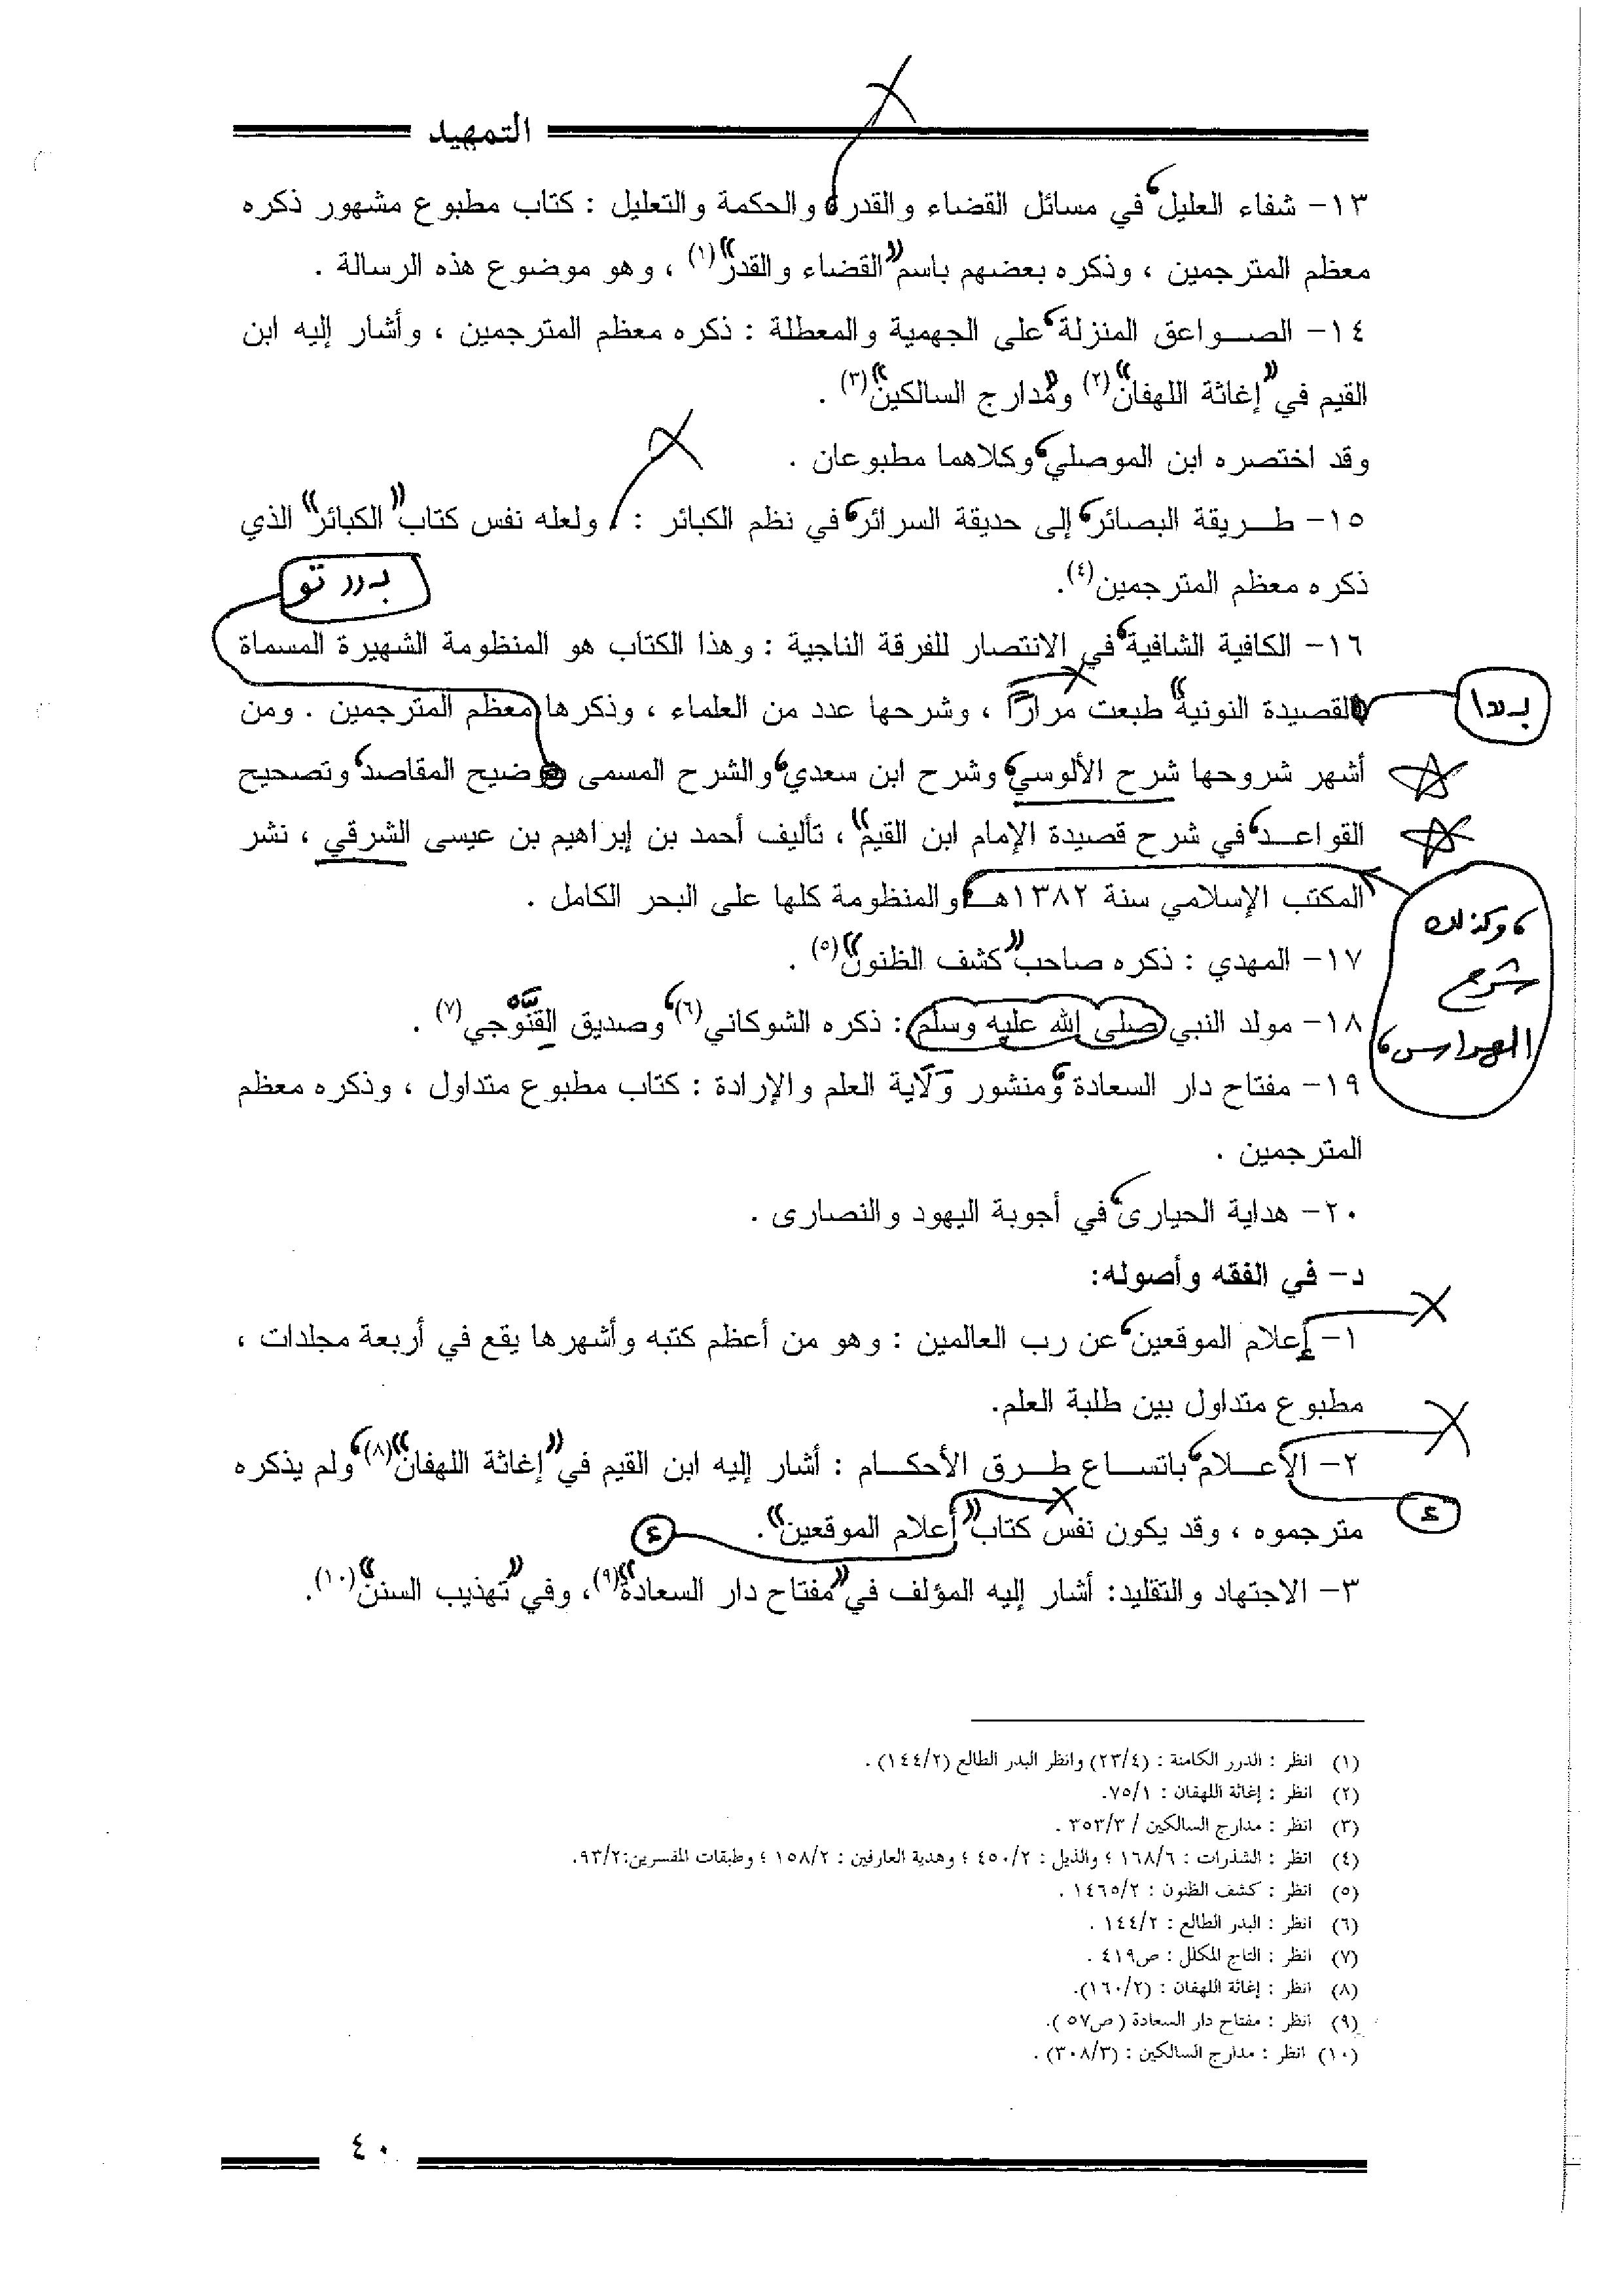 التمهيد
١٣- شفاء العليل في مسائل القضاء والقدر والحكمة والتعليل : كتاب مطبوع مشهور ذكره
معظم المترجمين ، وذكره بعضهم باسم "القضاء والقدر" (١) ، وهو موضوع هذه الرسالة .
١٤- الصواعق المنزلة على الجهمية والمعطلة : ذكره معظم المترجمين ، وأشار إليه ابن
القيم في "إغاثة اللهفان" (٢) و"مدارج السالكين" (٣) .
وقد اختصره ابن الموصلي، وكلاهما مطبوعان .
١٥- طريقة البصائر، إلى حديقة السرائر، في نظم الكبائر : ولعله نفس كتاب "الكبائر" الذي
ذكره معظم المترجمين(٤).
بـ"تو
١٦- الكافية الشافية، في الانتصار للفرقة الناجية : وهذا الكتاب هو المنظومة الشهيرة المسماة
بـ"ا
القصيدة النونية" طبعت مراراً ، وشرحها عدد من العلماء ، وذكرها معظم المترجمين . ومن
أشهر شروحها شرح الألوسي، وشرح ابن سعدي، والشرح المسمى توضيح المقاصد، وتصحيح
القواعد، في شرح قصيدة الإمام ابن القيم" ، تأليف أحمد بن إبراهيم بن عيسى الشرقي ، نشر
المكتب الإسلامي سنة ١٣٨٢هـ، والمنظومة كلها على البحر الكامل .
، وكذلك
شرح
الهراس،
١٧- المهدي : ذكره صاحب "كشف الظنون" (٥) .
١٨- مولد النبي صلى الله عليه وسلم : ذكره الشوكاني(٦)، وصديق القَنُّوجي(٧) .
١٩- مفتاح دار السعادة، ومنشور وَلاية العلم والإرادة : كتاب مطبوع متداول ، وذكره معظم
المترجمين .
٢٠- هداية الحيارى، في أجوبة اليهود والنصارى .
د- في الفقه وأصوله:
١- إعلام الموقعين، عن رب العالمين : وهو من أعظم كتبه وأشهرها يقع في أربعة مجلدات ،
مطبوع متداول بين طلبة العلم.
٢- الأعلام، باتساع طرق الأحكام : أشار إليه ابن القيم في "إغاثة اللهفان" (٨)، ولم يذكره
ء
مترجموه ، وقد يكون نفس كتاب "أعلام الموقعين".
ء
٣- الاجتهاد والتقليد: أشار إليه المؤلف في "مفتاح دار السعادة" (٩)، وفي "تهذيب السنن" (١٠).
(١) انظر : الدرر الكامنة : (٢٣/٤) وانظر البدر الطالع (١٤٤/٢) .
(٢) انظر : إغاثة اللهفان : ٧٥/١.
(٣) انظر : مدارج السالكين / ٣٥٣/٣ .
(٤) انظر : الشذرات : ١٦٨/٦ ؛ والذيل : ٤٥٠/٢ ؛ وهدية العارفين : ١٥٨/٢ ؛ وطبقات المفسرين:٩٣/٢.
(٥) انظر : كشف الظنون : ١٤٦٥/٢ .
(٦) انظر : البدر الطالع : ١٤٤/٢ .
(٧) انظر : التاج المكلل : ص٤١٩ .
(٨) انظر : إغاثة اللهفان : (١٦٠/٢).
(٩) انظر : مفتاح دار السعادة (ص٥٧ ).
(١٠) انظر : مدارج السالكين : (٣٠٨/٣) .
٤٠